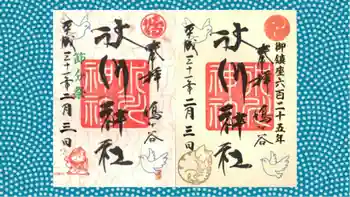 奉拝 鳩ヶ谷
氷川神社
平成三十一年二月三日
節分祭
御鎮座六百二十五年
奉拝 鳩ヶ谷
氷川神社
平成三十一年二月三日